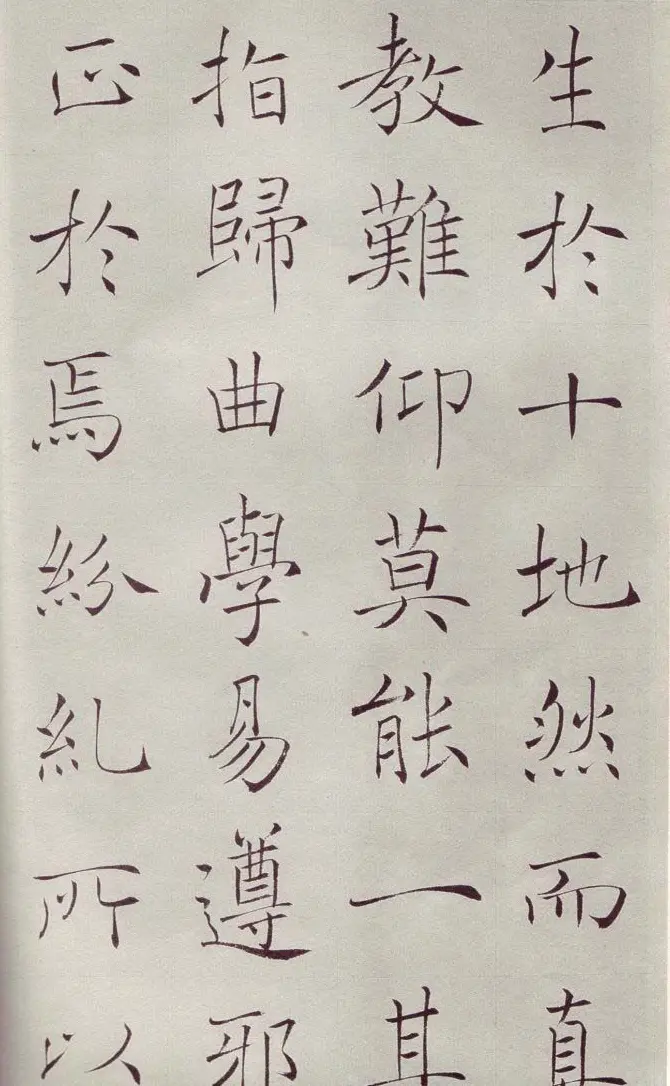 生於十地然而真
教難仰莫能一其
指歸曲學易遵邪
正於焉紛糾所以